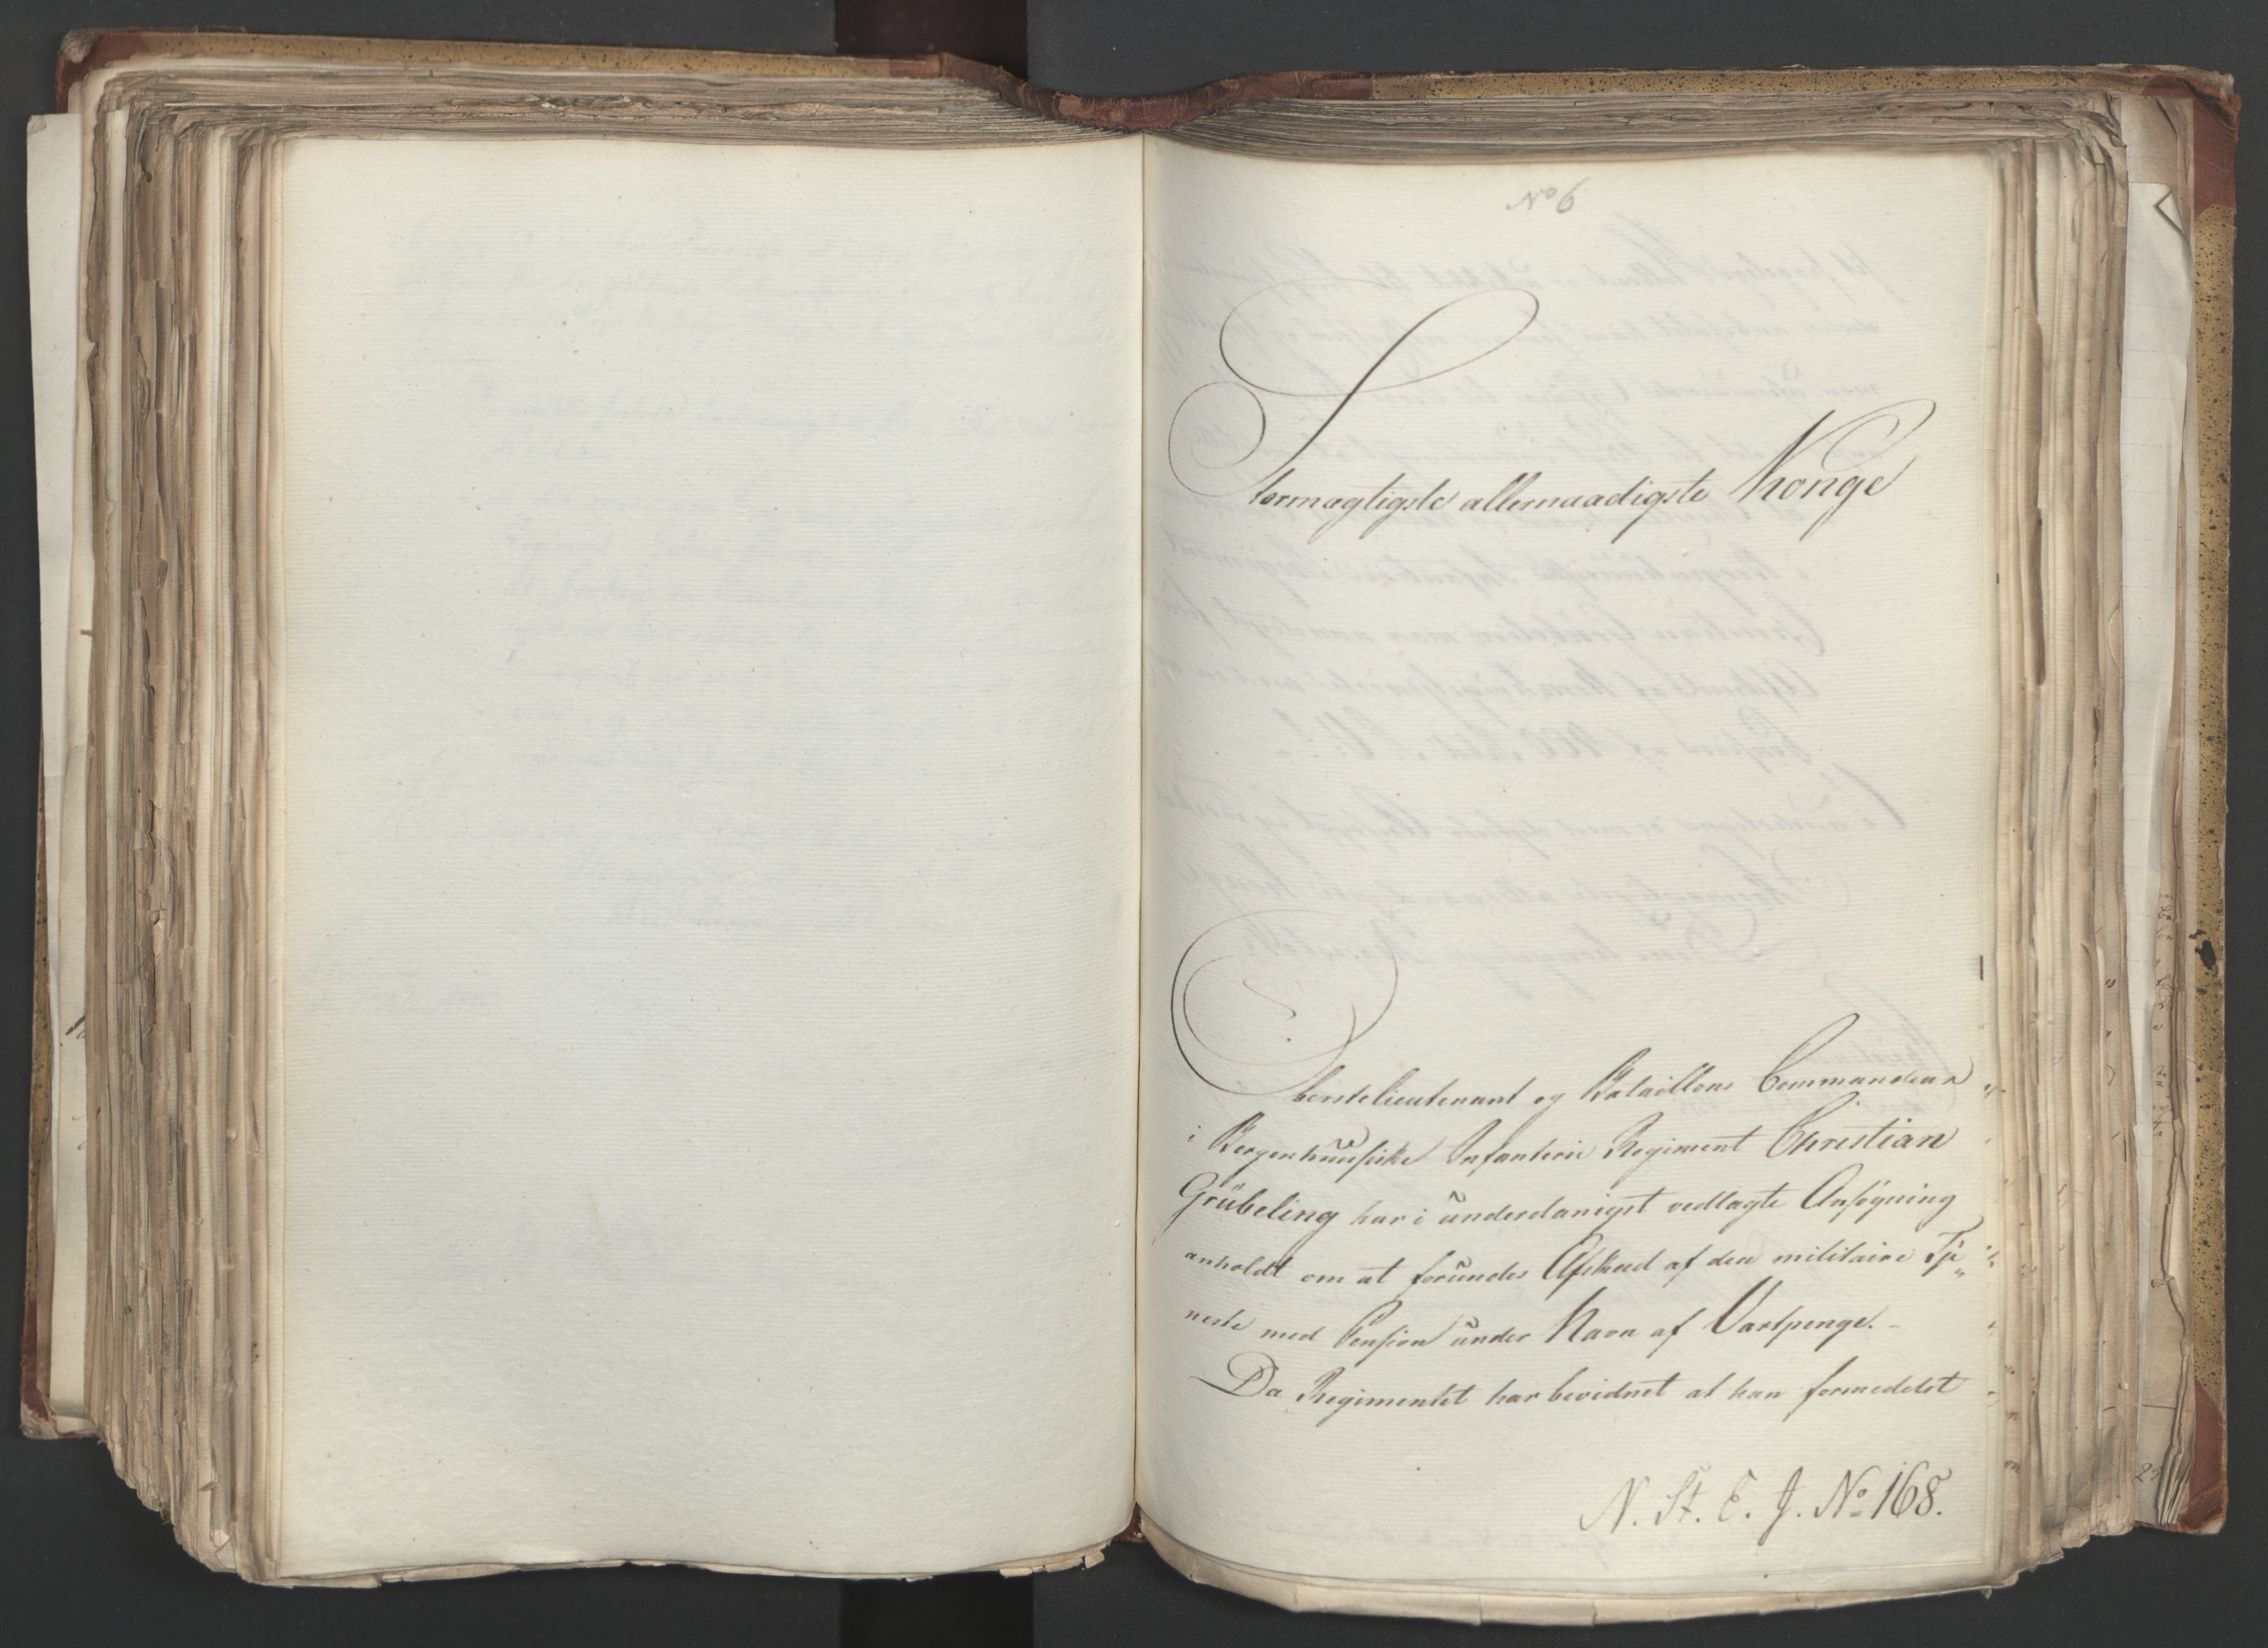 No 6
Stormægtigste allernaadigste Konge
Oberstelieutenant og Bataillons Commandeur
i Bergenhuusiske Infanterie Regiment Christian
Grübeling har i underdanigst vedlagte Ansøgning
anholdt om at forundes Afskeed af den militaire Tje„
neste med Pension under Navn af Vartpenge.–
Da Regimentet har bevidnet at han formedelst
N. St. E. J. No 168.